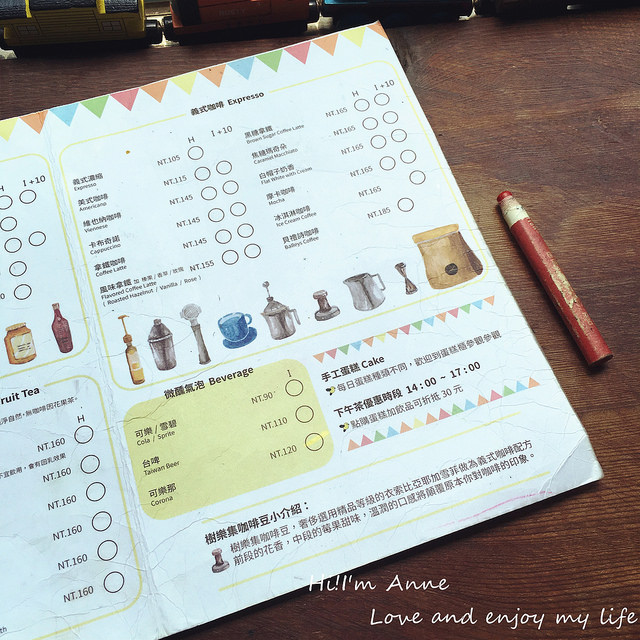 義式咖啡 Expresso
H I+10
義式濃縮 NT.105
Expresso
美式咖啡 NT.115
Americano
維也納咖啡 NT.145
Viennese
卡布奇諾 NT.145
Cappuccino
拿鐵咖啡 NT.145
Coffee Latte
風味拿鐵 加 榛果/香草/玫瑰 NT.155
Flavored Coffee Latte
( Roasted Hazelnut / Vanilla / Rose )
H I+10
黑糖拿鐵 NT.165
Brown Sugar Coffee Latte
焦糖瑪奇朵 NT.165
Caramel Macchiato
白帽子奶香 NT.165
Flat White with Cream
摩卡咖啡 NT.165
Mocha
冰淇淋咖啡 NT.165
Ice Cream Coffee
貝禮詩咖啡 NT.185
Baileys Coffee
H I+10
ruit Tea
H
NT.160
NT.160
NT.160
NT.160
NT.160
NT.160
th
微醺氣泡 Beverage
I
可樂/雪碧 NT.90
Cola / Sprite
台啤 NT.110
Taiwan Beer
可樂那 NT.120
Corona
手工蛋糕 Cake
每日蛋糕種類不同，歡迎到蛋糕櫃參觀參觀
下午茶優惠時段 14：00 ~ 17：00
點購蛋糕加飲品可折抵 30 元
樹樂集咖啡豆小介紹：
樹樂集咖啡豆，奢侈選用精品等級的衣索比亞耶加雪菲做為義式咖啡配方
前段的花香，中段的莓果甜味，溫潤的口感將顛覆原本你對咖啡的印象。
Hi!I'm Anne
Love and enjoy my life